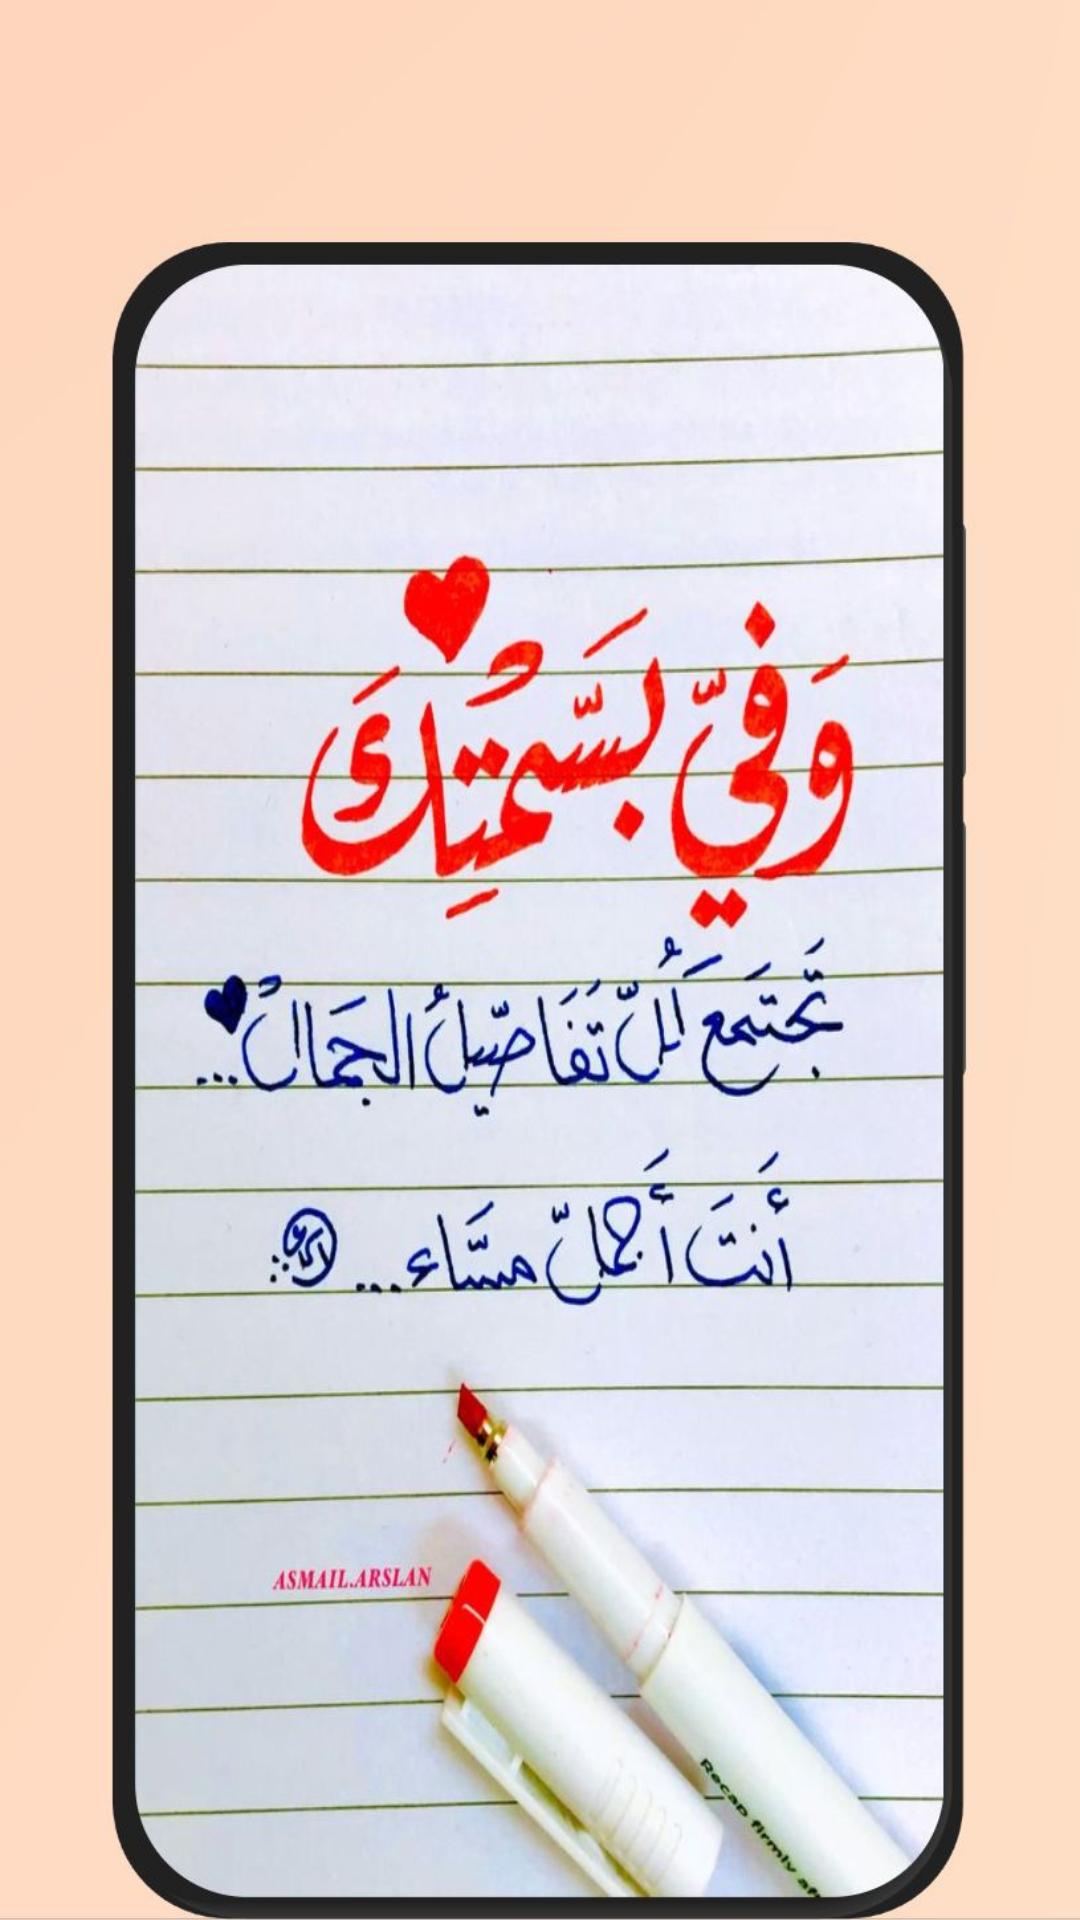 وَفيّ بَسّمُتِكَ
تَجتَمَع كُلّ تَفَاصّيلُ الجَمَالُ...
أَنتَ أَجملّ مسَّاء...
ASMAIL.ARSLAN
Recap firmly aft